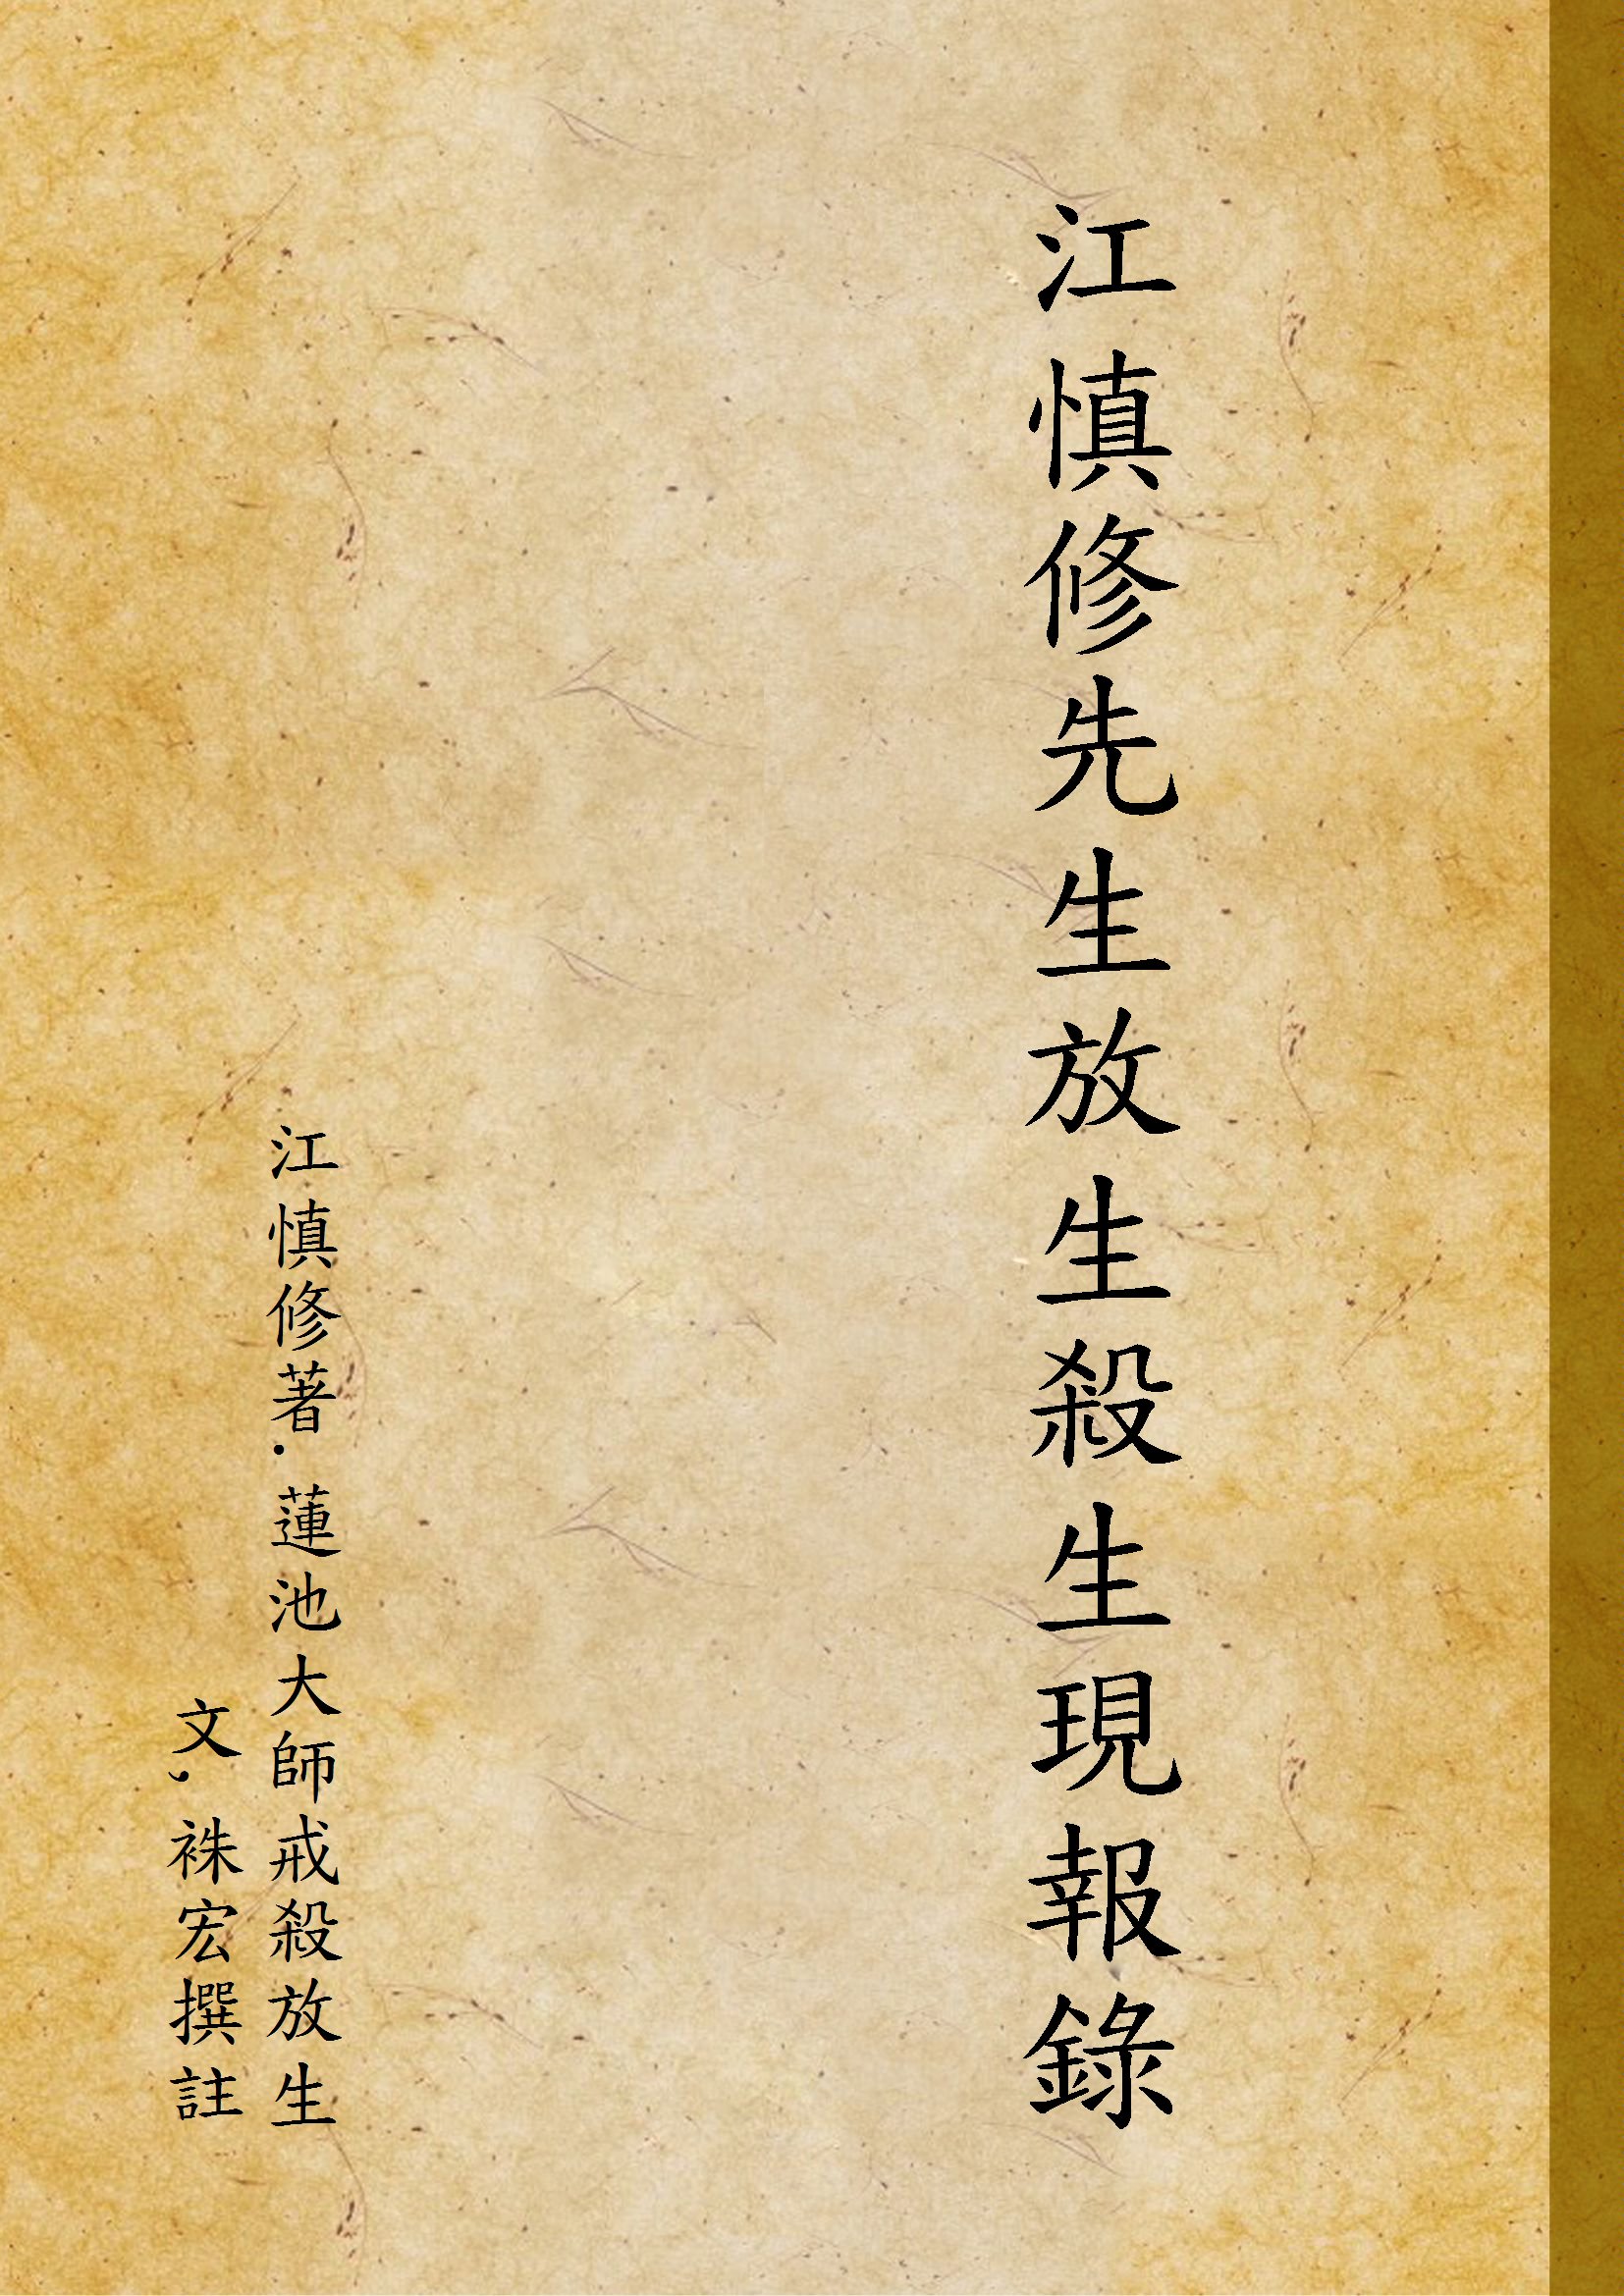 江慎修先生放生殺生現報錄
江慎修著. 蓮池大師戒殺放生
文, 袾宏撰註